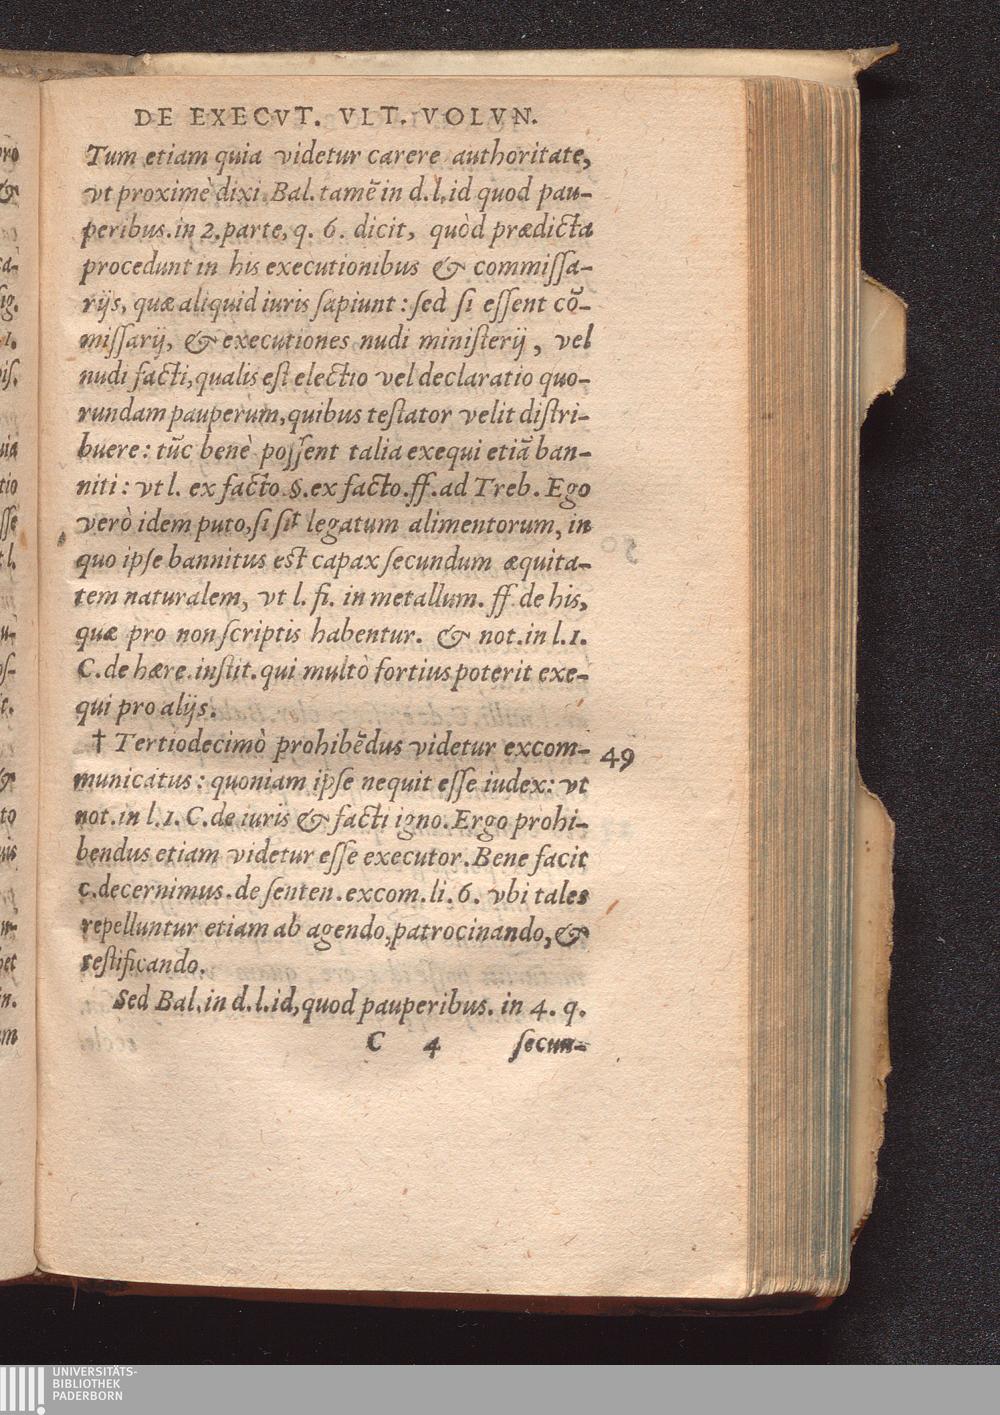 DE EXECVT. VLT. VOLVN.
Tum etiam quia videtur carere authoritate,
vt proximè dixi. Bal. tamẽ in d. l. id quod pau-
peribus. in 2. parte, q. 6. dicit, quòd prædicta
procedunt in his executionibus & commiſſa-
rijs, quæ aliquid iuris ſapiunt : ſed ſi eſſent cõ-
miſſarij, & executiones nudi miniſterij, vel
nudi facti, qualis eſt electio vel declaratio quo-
rundam pauperum, quibus teſtator velit diſtri-
buere : tũc benè poſſent talia exequi etiã ban-
niti : vt l. ex facto. §. ex facto. ff. ad Treb. Ego
verò idem puto, ſi ſit legatum alimentorum, in
quo ipſe bannitus eſt capax ſecundum æquita-
tem naturalem, vt l. fi. in metallum. ff. de his,
quæ pro non ſcriptis habentur. & not. in l. 1.
C. de hære. inſtit. qui multò fortius poterit exe-
qui pro alijs.
† Tertiodecimò prohibẽdus videtur excom- 49
municatus : quoniam ipſe nequit eſſe iudex : vt
not. in l. 1. C. de iuris & facti igno. Ergo prohi-
bendus etiam videtur eſſe executor. Bene facit
c. decernimus. de ſenten. excom. li. 6. vbi tales
repelluntur etiam ab agendo, patrocinando, &
teſtificando.
Sed Bal. in d. l. id, quod pauperibus. in 4. q.
C 4 ſecun-
UNIVERSITÄTS-
BIBLIOTHEK
PADERBORN